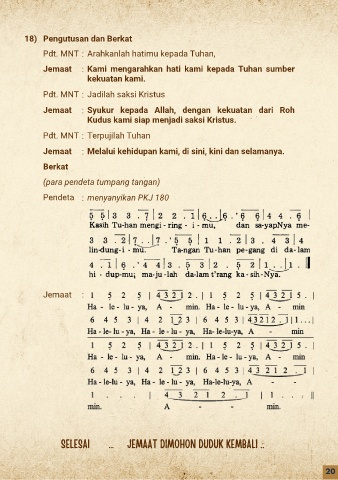 18) Pengutusan dan Berkat
Pdt. MNT : Arahkanlah hatimu kepada Tuhan,
Jemaat : Kami mengarahkan hati kami kepada Tuhan sumber
kekuatan kami.
Pdt. MNT : Jadilah saksi Kristus
Jemaat : Syukur kepada Allah, dengan kekuatan dari Roh
Kudus kami siap menjadi saksi Kristus.
Pdt. MNT : Terpujilah Tuhan
Jemaat : Melalui kehidupan kami, di sini, kini dan selamanya.
Berkat
(para pendeta tumpang tangan)
Pendeta : menyanyikan PKJ 180
5 5 | 3 3 . 7 | 2 2 . 1 | 6 . . 6 . ' 6 6 | 4 4 . 6 |
Kasih Tu-han mengi - ring - i - mu, dan sa-yapNya me-
3 3 . 2 | 7 . . 7 . ' 5 5 | 1 1 . 2 | 3 . 4 3 | 4
lin-dung-i - mu. Ta-ngan Tu-han pe-gang di da-lam
4 . 1 | 6 . ' 4 4 | 3 . 5 3 | 2 . 5 2 | 1 . . | 1 . ||
hi - dup-mu; ma-ju-lah da-lam t'rang ka-sih-Nya.
Jemaat : 1 5 2 5 | 4 3 2 1 2 . | 1 5 2 5 | 4 3 2 1 5 . |
Ha - le - lu - ya, A - min. Ha - le - lu - ya, A - min
6 4 5 3 | 4 2 1 2 3 | 6 4 5 3 | 4 3 2 1 2 . 1 | 1 . . . |
Ha - le- lu - ya, Ha - le - lu - ya, Ha-le-lu-ya, A - min
1 5 2 5 | 4 3 2 1 2 . | 1 5 2 5 | 4 3 2 1 5 . |
Ha - le - lu - ya, A - min. Ha - le - lu - ya, A - min
6 4 5 3 | 4 2 1 2 3 | 6 4 5 3 | 4 3 2 1 2 . 1 |
Ha - le-lu - ya, Ha - le - lu - ya, Ha-le-lu-ya, A - -
1 . . . | 4 3 2 1 2 . 1 | 1 . . . ||
min. A - - min.
SELESAI ... JEMAAT DIMOHON DUDUK KEMBALI ..
20